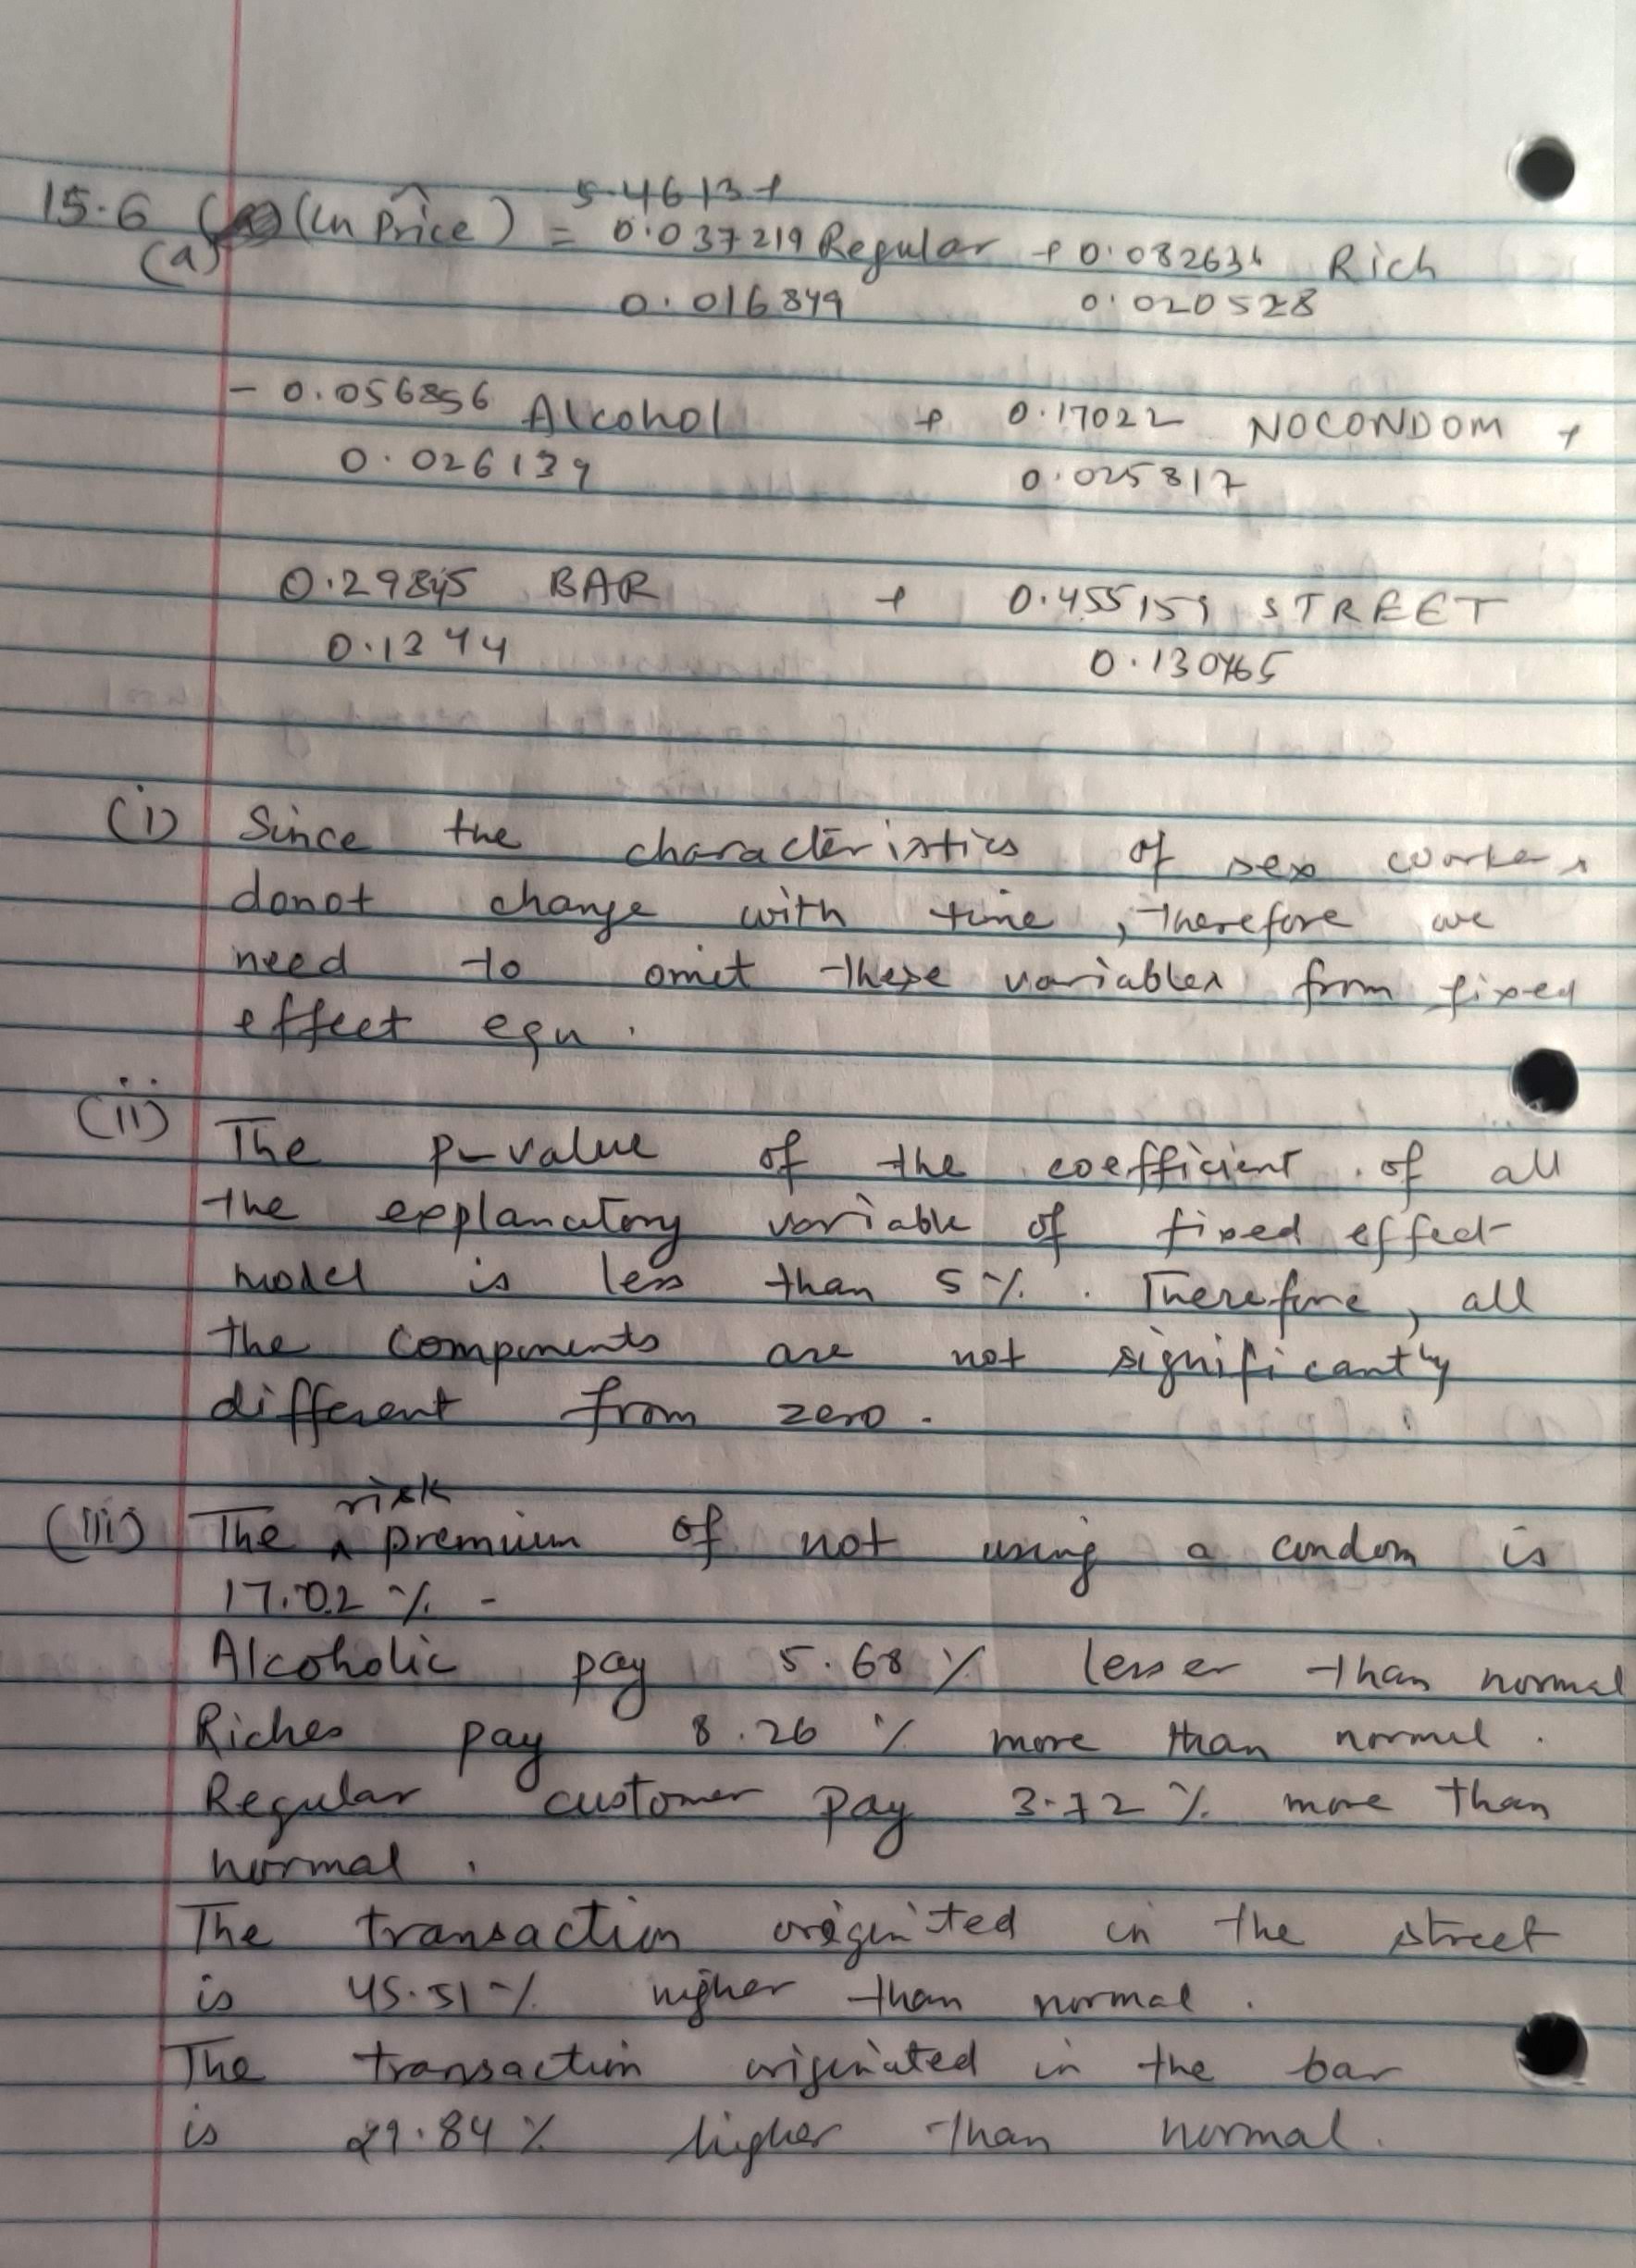 5.4613 +
15.6 (ln Price) = 0.037219 Regular + 0.082634 Rich
(a)
0.016849 0.020528
- 0.056856 Alcohol + 0.17022 NOCONDOM +
0.026139 0.025817
0.29845 BAR + 0.455159 STREET
0.1344 0.130465
(i) Since the characteristics of sex workers
donot change with time, therefore we
need to omit these variables from fixed
effect equ.
(ii) The p-value of the coefficient of all
the explanatory variable of fixed effect
model is less than 5%. Therefore, all
the components are not significantly
different from zero.
risk
(iii) The ^ premium of not using a condom is
17.02% -
Alcoholic pay 5.68% lesser than normal
Riches pay 8.26% more than normal.
Regular customer pay 3.72% more than
normal.
The transaction originted in the street
is 45.51% higher than normal.
The transaction originated in the bar
is 29.84% higher than normal.